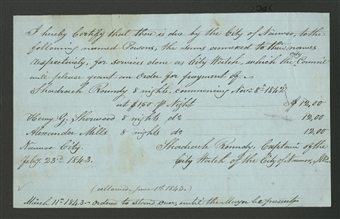 I hereby Certify that there is due by the City of Nauvoo, to the
following named Persons, the sums annexed to their names
respectively, for services done as City Watch, which the City Council
will please grant an order for payment of.
Shadrach Roundy 8 nights, commencing Nov. 8th 1842
at $1.50 pr Night $12,00
Henry G. Sherwood 8 nights do 12,00
Alexander Mills 8 nights do 12,00
Nauvoo City, Shadrach Roundy, Captain of the
Feby 23rd 1843. City Watch of the City of Nauvoo, Ills.
(allowed, 1843.)
March 11th 1843 - ordered to stand over, until the Mayor be present